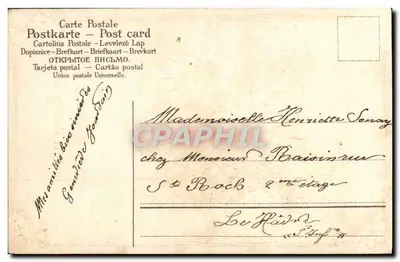 Carte Postale
Postkarte — Post card
Cartolina Postale - Levelező Lap
Dopisnice - Brefkort - Briefkaart - Brevkort
ОТКРЫТОЕ ПИСЬМО.
Tarjeta postal — Cartão postal
Union postale Universelle.
Mes amitiés bien sincères
Jourdain
Mademoiselle Henriette
CPARAPHIL
chez Monsieur Raisin rue
St Roch 2me étage
Le Hâvre
"S. Infre"